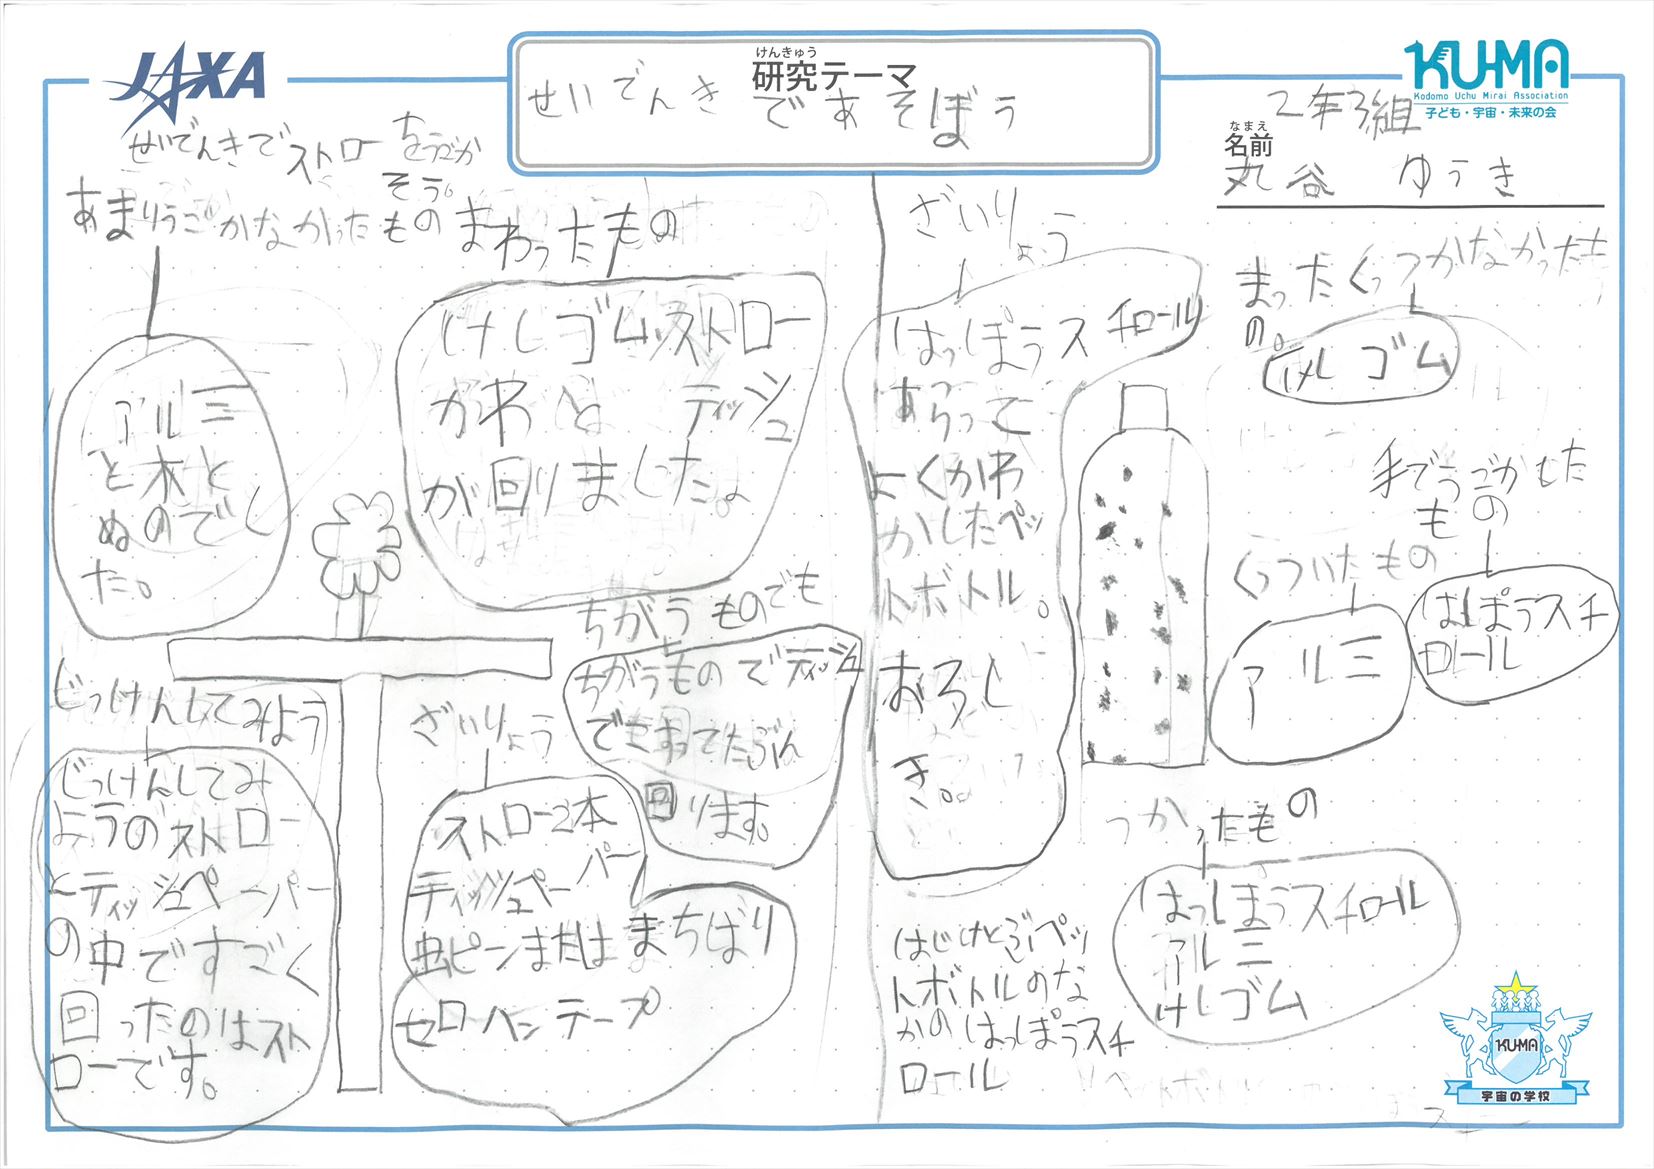 JAXA
けんきゅう
研究テーマ
せいでんきであそぼう
KU-MA
Kodomo Uchu Mirai Association
子ども・宇宙・未来の会
2年3組
なまえ
名前
丸谷 ゆうき
せいでんきでストローをうごか
そう。
あまりうごかなかったもの
アルミ
と木と
ぬのでし
た。
まわったもの
けしゴムストロー
がわと ティッシュ
が回りました。
ちがうものでも
ちがうものでティッシュ
でもすってたぶん
回ります。
じっけんしてみよう
じっけんしてみ
ようのストロー
とティッシュペーパー
の中ですごく
回ったのはスト
ローです。
ざいりょう
ストロー2本
ティッシュペーパー
虫ピンまたはまちばり
セロハンテープ
ざいりょう
はっぽうスチロール
あらって
よくかわ
かしたペッ
トボトル。
おろし
き。
はじけとぶペッ
トボトルのな
かのはっぽうスチ
ロール
まったくくっつかなかったも
の。
けしゴム
手でうごかした
もの
はっぽうスチ
ロール
くっついたもの
アルミ
つかったもの
はっぽうスチロール
アルミ
けしゴム
KU-MA
宇宙の学校